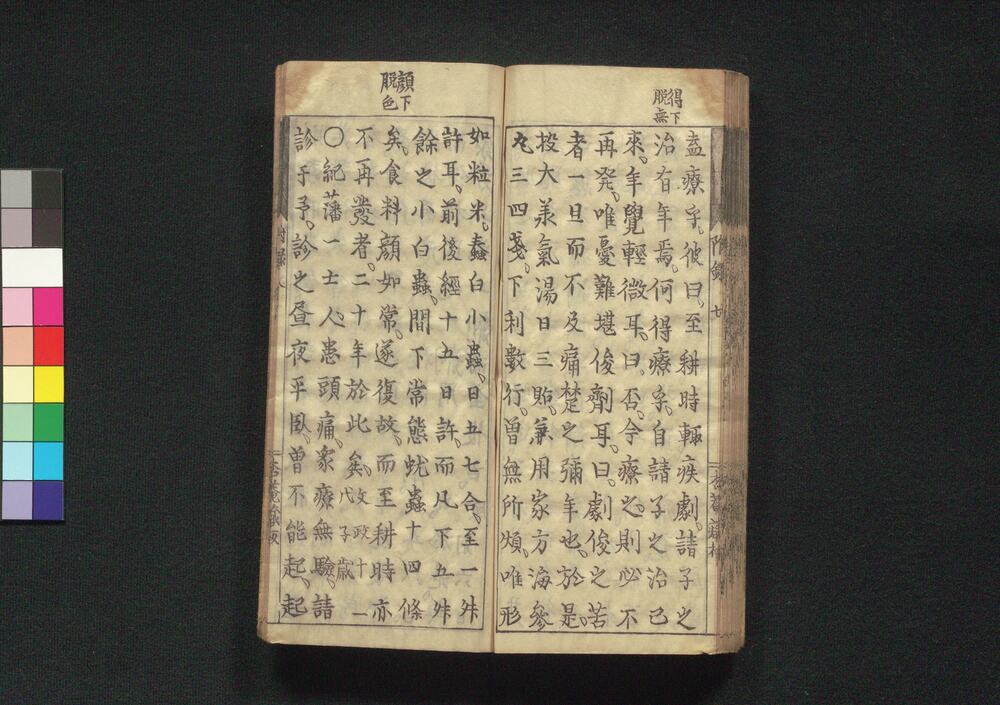 得下
脱無
盍療乎。彼曰。至耕時輙疾劇。請子之
治有年焉。何得療乎。自請子之治已
來。年覺輕微耳。曰。否。今療之。則必不
再発。唯憂難堪俊劑耳。曰。劇俊之苦
者一旦而不及痛楚之彌年也。於是。
投大羕氣湯日三貼。兼用家方海參
丸三四戔。下利數行。曽無所煩。唯形
附錄 七
顔下
脱色
如粒米。蠢白小蟲。日五七合。至一舛
許耳。前後經十五日許。而凡下五舛
餘之小白蟲。間下常態蚘蟲十四條
矣。食料顔如常。遂復故。而至耕時亦
不再發者。二十年於此矣。文政十一代子歳
〇紀藩一士人。患頭痛。衆療無驗。請
診于予。診之昼夜平臥。曽不能起。起
附錄 八